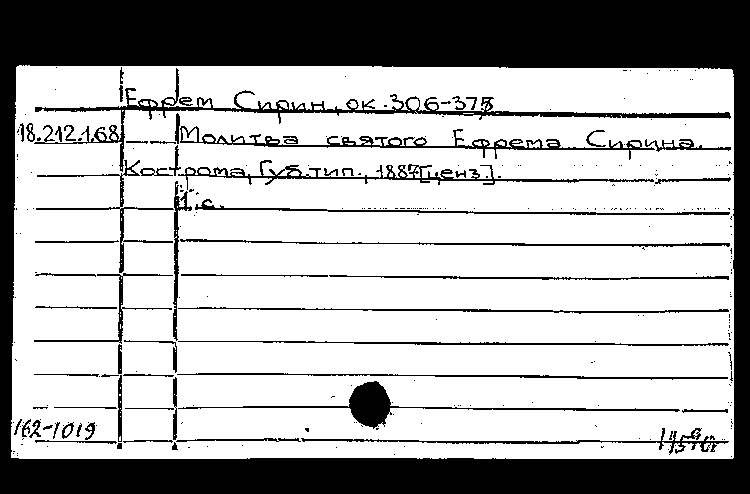 Ефрем Сирин, ок. 306-373
18.212.1.68 Молитва святого Ефрема Сирина.
Кострома, Губ. тип., 1887[ценз.].
1 с.
162-1019